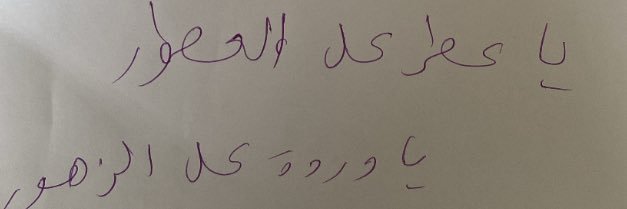 يا عطر كل العطور
يا وردة كل الزهور